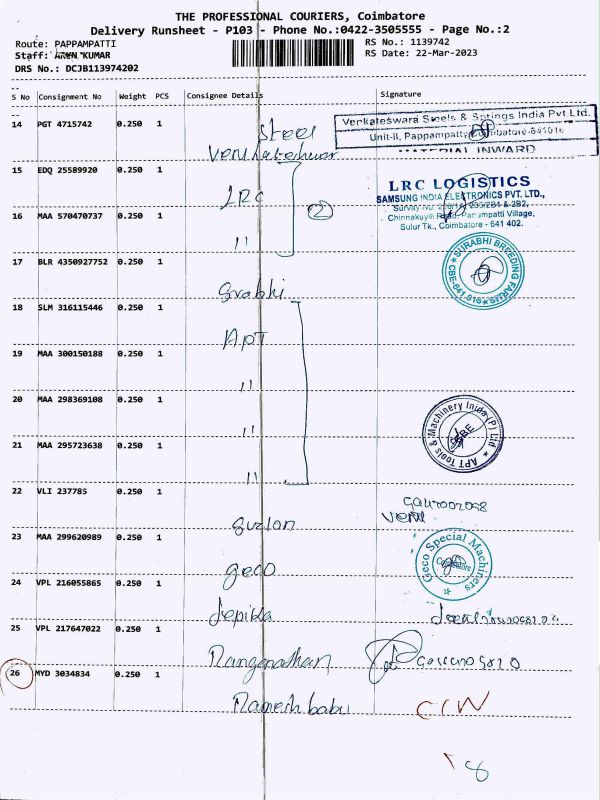 THE PROFESSIONAL COURIERS, Coimbatore
Delivery Runsheet - P103 - Phone No.:0422-3505555 - Page No.:2
Route: PAPPAMPATTI
RS No.: 1139742
Staff: ARUN KUMAR
RS Date: 22-Mar-2023
DRS No.: DCJB113974202
S No Consignment No Weight PCS Consignee Details Signature
14 PGT 4715742 0.250 1 Steel
Venkateshwar
Venkateswara Steels & Springs India Pvt Ltd.
Unit-II, Pappampatty, Coimbatore-641016
MATERIAL INWARD
15 EDQ 25589920 0.250 1 LRC
16 MAA 570470737 0.250 1 "
2
LRC LOGISTICS
SAMSUNG INDIA ELECTRONICS PVT. LTD.,
Chinnakuyili Road, Pappampatti Village,
Sulur Tk., Coimbatore - 641 402.
17 BLR 4350927752 0.250 1 Surabhi
SURABHI BREEDING FARMS
CBE-641 016
18 SLM 316115446 0.250 1 APT
19 MAA 300150188 0.250 1 "
20 MAA 298369108 0.250 1 "
21 MAA 295723638 0.250 1 "
APT Tools & Machinery India (P) Ltd
CBE
22 VLI 237785 0.250 1 Suzlon
23 MAA 299620989 0.250 1 geco
Geco Special Machines
24 VPL 216055865 0.250 1 Depika
25 VPL 217647022 0.250 1 Ranganathan
26 MYD 3034834 0.250 1 Ramesh babu
8